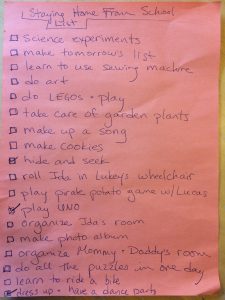 Staying Home From School
List
science experiments
make tomorrow's list
learn to use sewing machine
do art
do LEGOs + play
take care of garden plants
make up a song
make cookies
hide and seek
roll Ida in Lukey's wheelchair
play pirate potato game w/Lucas
play UNO
organize Ida's room
make photo album
organize Mommy + Daddy's room
do all the puzzles in one day
learn to ride a bike
dress up + have a dance party